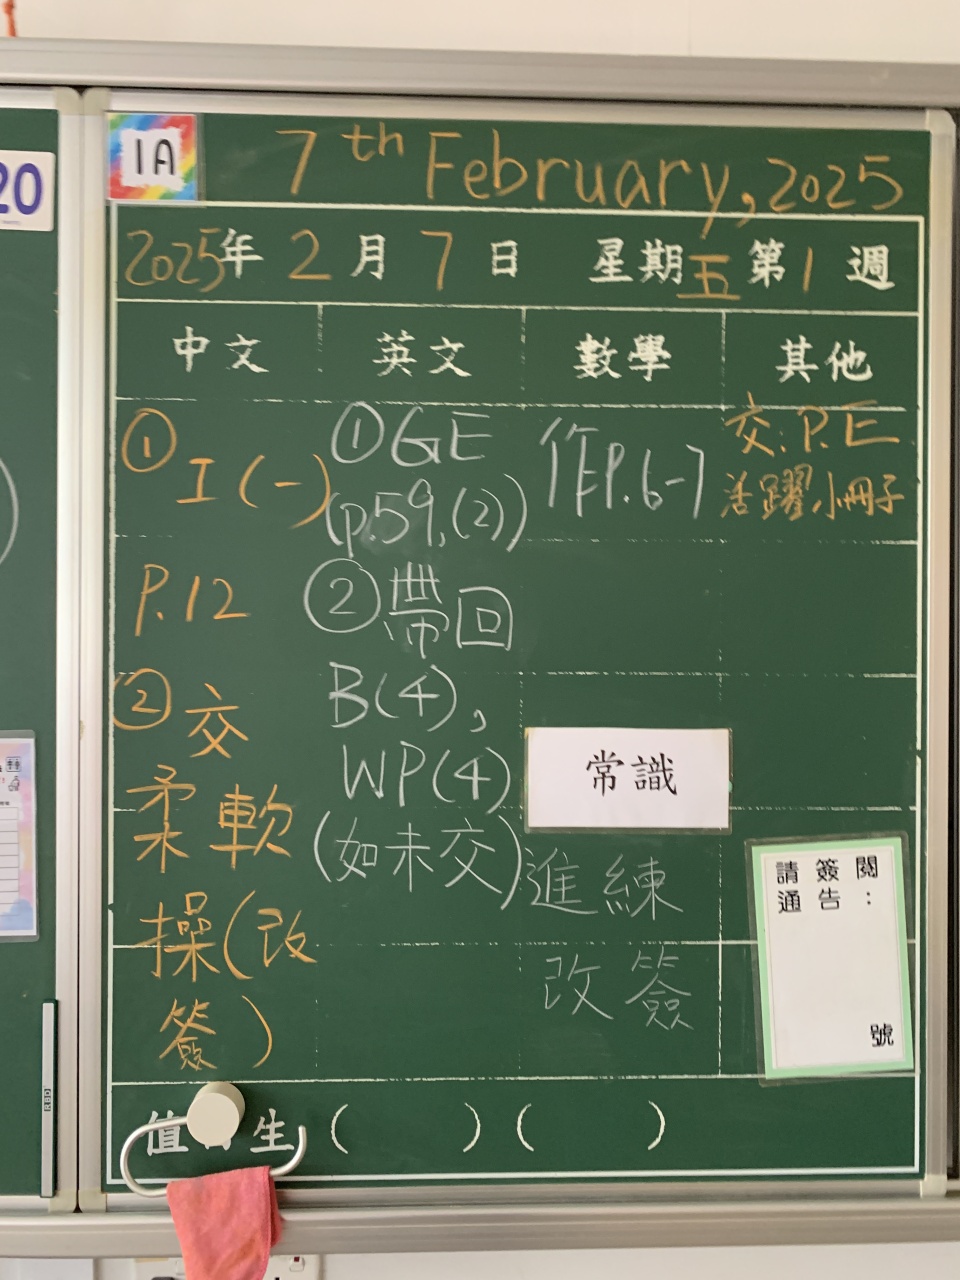 20
1A
7th February, 2025
2025年 2 月 7 日 星期五 第 1 週
中文 英文 數學 其他
① I (一)
P.12
② 交
柔軟
操(改
簽)
① GE
(p.59,(2))
② 帶回
B(4),
WP(4)
(如未交)
作P.6-7
常識
進練
改簽
交: P.E
活躍小冊子
請簽閱
通告:
號
值 生 ( ) ( )